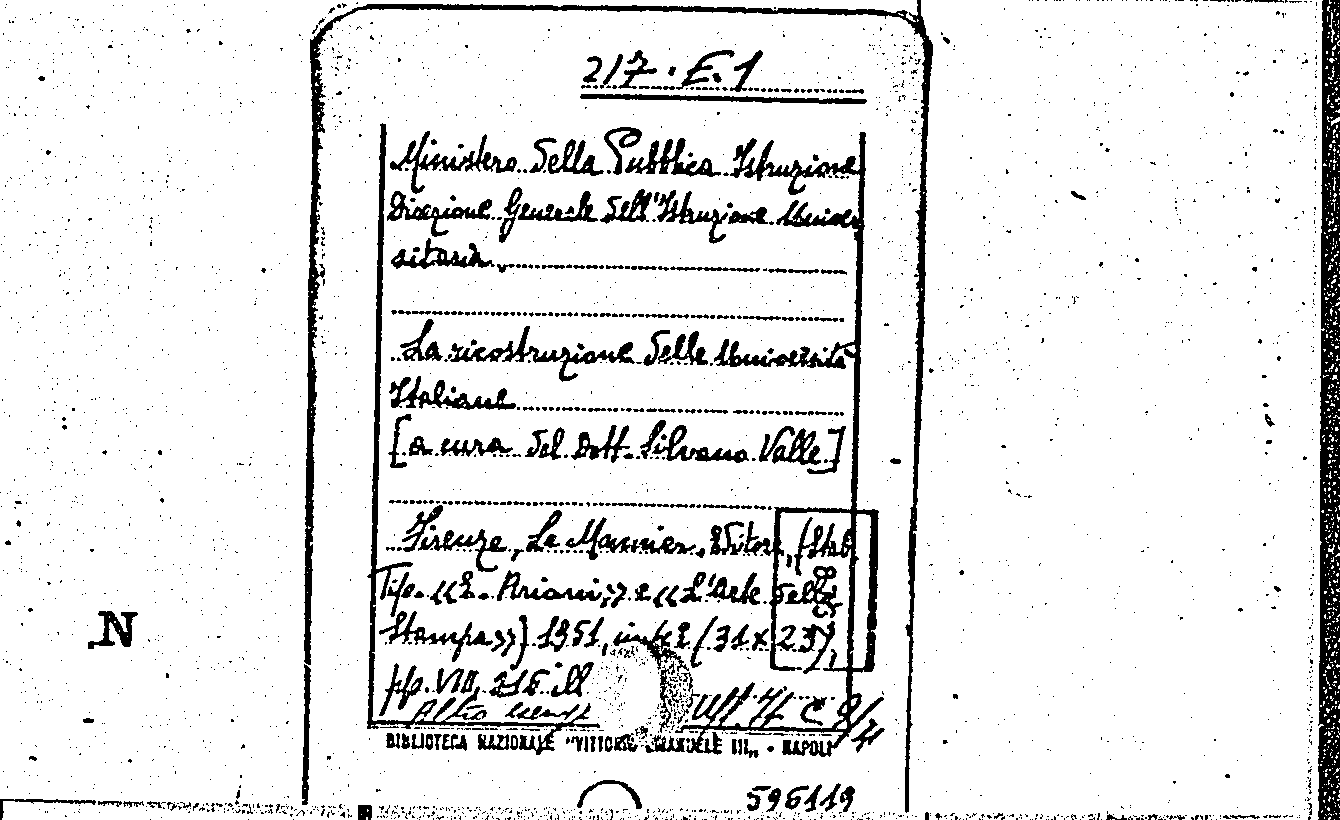 217.E.1
Ministero della Pubblica Istruzione
Direzione Generale dell'Istruzione Univer
sitaria.
La ricostruzione delle Università
Italiane
[a cura del Dott. Silvano Valle]
Firenze, Le Monnier, Editore, (Stab.
Tip. «E. Ariani» e «L'Arte della
Stampa») 1951, (31x23),
pp. VIII, 216 ill
Altro esempl Uff. It C 8/4
BIBLIOTECA NAZIONALE "VITTORIO EMANUELE III„ - NAPOLI
596119
N